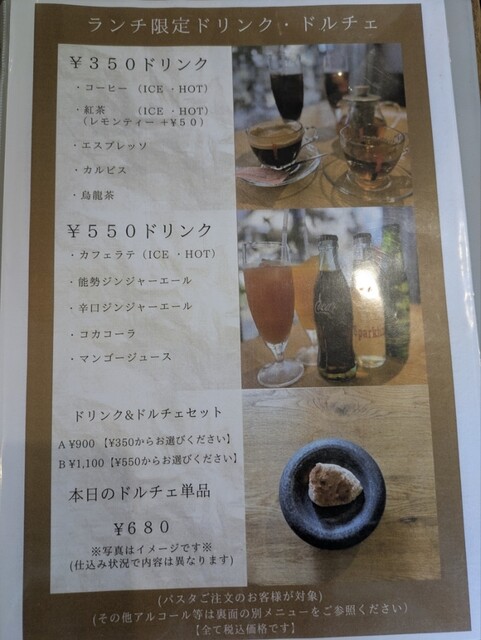 ランチ限定ドリンク・ドルチェ
￥３５０ドリンク
・コーヒー （ICE ・HOT）
・紅茶 （ICE ・HOT）
（レモンティー ＋￥５０）
・エスプレッソ
・カルピス
・烏龍茶
￥５５０ドリンク
・カフェラテ（ICE ・HOT）
・能勢ジンジャーエール
・辛口ジンジャーエール
・コカコーラ
・マンゴージュース
ドリンク&ドルチェセット
A ¥900 【¥350からお選びください】
B ¥1,100【¥550からお選びください】
本日のドルチェ単品
￥６８０
※写真はイメージです※
(仕込み状況で内容は異なります)
(パスタご注文のお客様が対象)
(その他アルコール等は裏面の別メニューをご参照ください)
【全て税込価格です】